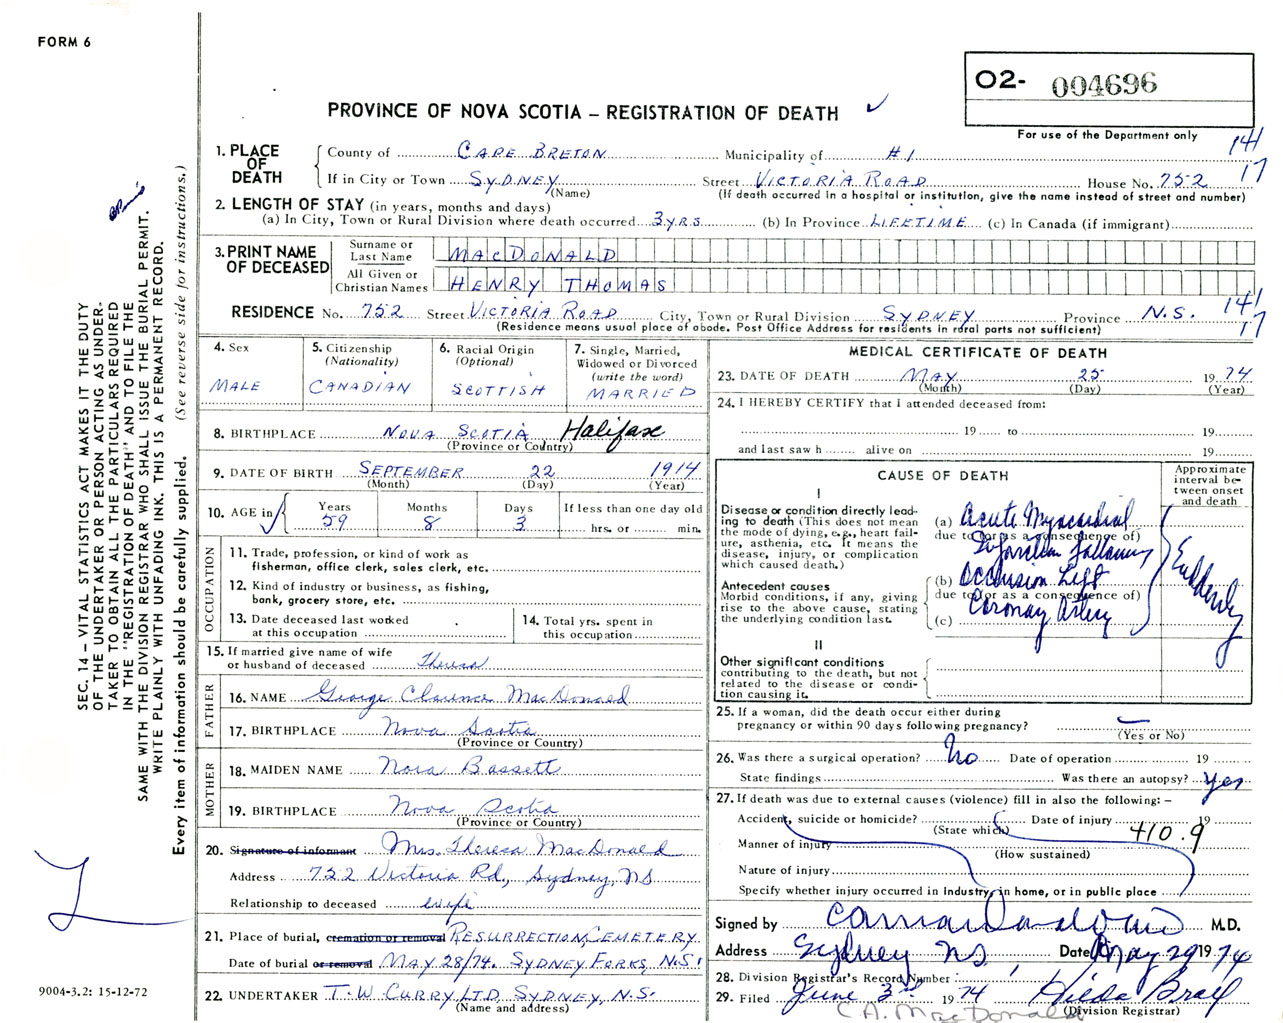 FORM 6
O2- 004696
PROVINCE OF NOVA SCOTIA – REGISTRATION OF DEATH ✓
For use of the Department only
141
17
1. PLACE OF DEATH
County of CAPE BRETON Municipality of #1
If in City or Town SYDNEY Street VICTORIA ROAD House No. 752
(Name) (If death occurred in a hospital or institution, give the name instead of street and number)
2. LENGTH OF STAY (in years, months and days)
(a) In City, Town or Rural Division where death occurred 3 yrs (b) In Province LIFETIME (c) In Canada (if immigrant)
3. PRINT NAME OF DECEASED
Surname or Last Name MACDONALD
All Given or Christian Names HENRY THOMAS
RESIDENCE No. 752 Street VICTORIA ROAD City, Town or Rural Division SYDNEY Province N.S.
141
17
(Residence means usual place of abode. Post Office Address for residents in rural parts not sufficient)
4. Sex
MALE
5. Citizenship (Nationality)
CANADIAN
6. Racial Origin (Optional)
SCOTTISH
7. Single, Married, Widowed or Divorced (write the word)
MARRIED
8. BIRTHPLACE NOVA SCOTIA Halifax
(Province or Country)
9. DATE OF BIRTH SEPTEMBER 22 1914
(Month) (Day) (Year)
10. AGE in
Years 59 Months 8 Days 3 If less than one day old
hrs. or min.
OCCUPATION
11. Trade, profession, or kind of work as fisherman, office clerk, sales clerk, etc.
12. Kind of industry or business, as fishing, bank, grocery store, etc.
13. Date deceased last worked at this occupation
14. Total yrs. spent in this occupation
15. If married give name of wife or husband of deceased Theresa
FATHER
16. NAME George Clarence MacDonald
17. BIRTHPLACE Nova Scotia
(Province or Country)
MOTHER
18. MAIDEN NAME Nora Bassett
19. BIRTHPLACE Nova Scotia
(Province or Country)
20. Signature of informant Mrs. Theresa MacDonald
Address 752 Victoria Rd, Sydney, NS
Relationship to deceased wife
21. Place of burial, cremation or removal RESURRECTION CEMETERY
Date of burial or removal MAY 28/74. SYDNEY FORKS, N.S.
22. UNDERTAKER T.W CURRY LTD, SYDNEY, N.S.
(Name and address)
MEDICAL CERTIFICATE OF DEATH
23. DATE OF DEATH MAY 25 1974
(Month) (Day) (Year)
24. I HEREBY CERTIFY that I attended deceased from:
19 to 19
and last saw h alive on 19
CAUSE OF DEATH
Approximate interval between onset and death
I
Disease or condition directly leading to death (This does not mean the mode of dying, e.g., heart failure, asthenia, etc. It means the disease, injury, or complication which caused death.)
(a) Acute Myocardial
due to (or as a consequence of)
Infarction following
Antecedent causes
Morbid conditions, if any, giving rise to the above cause, stating the underlying condition last.
(b) Occlusion Left
due to (or as a consequence of)
Coronary Artery
(c)
Suddenly
II
Other significant conditions contributing to the death, but not related to the disease or condition causing it.
25. If a woman, did the death occur either during pregnancy or within 90 days following pregnancy? —
(Yes or No)
26. Was there a surgical operation? No Date of operation 19
State findings Was there an autopsy? Yes
27. If death was due to external causes (violence) fill in also the following: –
Accident, suicide or homicide? Date of injury 19
(State which)
410.9
Manner of injury
(How sustained)
Nature of injury
Specify whether injury occurred in Industry, in home, or in public place
Signed by M.D.
Address Sydney NS Date May 29 1974
28. Division Registrar's Record Number
29. Filed June 3rd 1974 Hilda Bray
(Division Registrar)
C.A. MacDonald
SEC. 14 – VITAL STATISTICS ACT MAKES IT THE DUTY
OF THE UNDERTAKER OR PERSON ACTING AS UNDER-
TAKER TO OBTAIN ALL THE PARTICULARS REQUIRED
IN THE "REGISTRATION OF DEATH" AND TO FILE THE
SAME WITH THE DIVISION REGISTRAR WHO SHALL ISSUE THE BURIAL PERMIT.
WRITE PLAINLY WITH UNFADING INK. THIS IS A PERMANENT RECORD.
Every item of information should be carefully supplied. (See reverse side for instructions.)
9004-3.2: 15-12-72